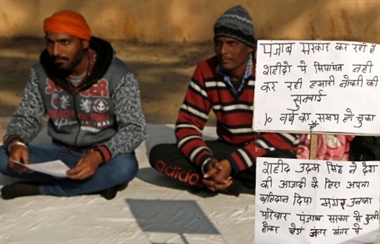 पंजाब सरकार कर रही है
शहीदों पे सियासत नही
कर रही हमारी नौकरी की
सुनवाई
10 वर्ष का समय हो चुका
है
शहीद उधम सिंह ने देश
की आजादी के लिए अपना
बलिदान दिया मगर उनका
परिवार पंजाब सरकार से दुखी
होकर बैठा जंतर मंतर पे
adidas